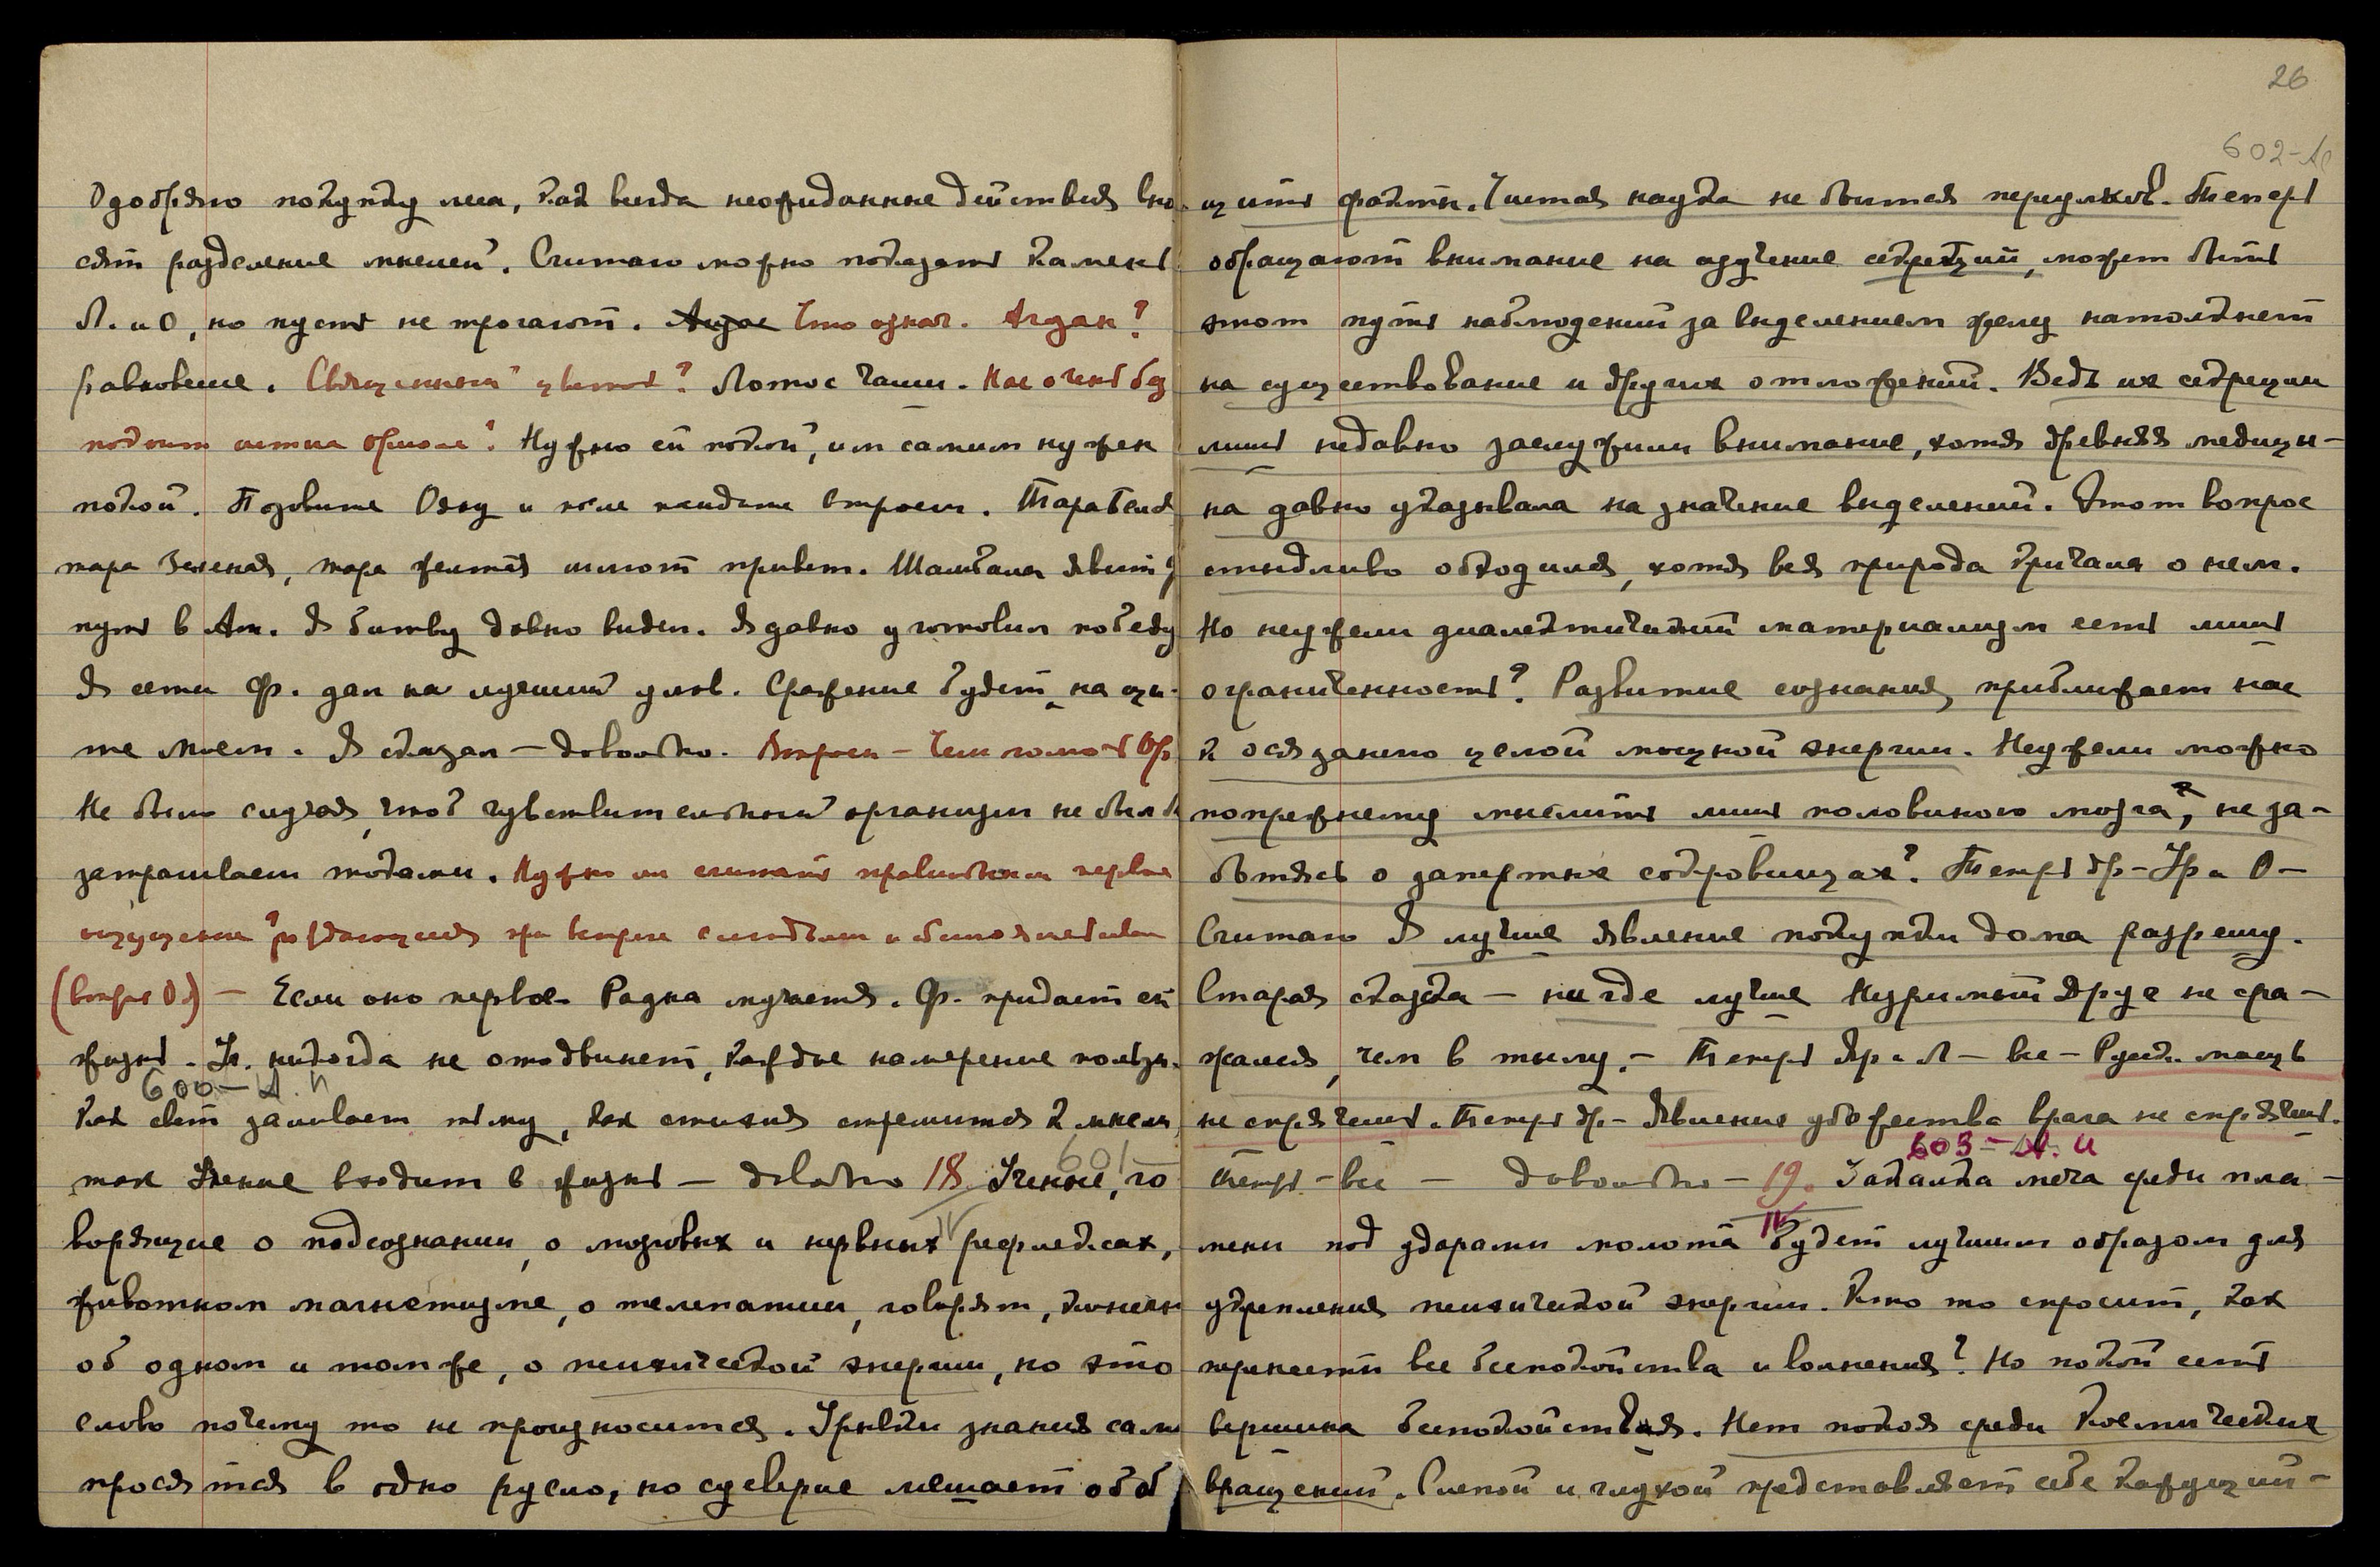 Одобряю покупку леса, как всегда неожиданные действия вно-
сят разделение мнений. Считаю можно показать камень
Л. и О, но пусть не трогают. Что означ. Агдан?
равновесие. Священный цветок? Лотос чаши. Нас очень без
покоит Нужно ей покой, им самим нужен
покой. Позовите Ояну и после втроем. Тара Белая
тара Зеленая, тара желтая шлют привет. Шамбала явит
путь в Ам. Я битву давно видел. Я давно уготовил победу
Я сети Ф. дал на лучший улов. Сражение будет на щи-
те моем. Я сказал — довольно.
Не было случая, чтоб чувствительный организм не был
затрагиваем токами. Нужно ли считать правильным первое
ощущение рождающееся при встрече с
(вопрос О) — Если оно первое. Радна мучается. Ф. придает ей
жизнь. Уч. никогда не отодвинет, каждое намерение полезн.
600 — А. Й
Как свет заливает тьму, как стихия стремится к мысли,
так Учение входит в жизнь — довольно 18 Ученые, го-
601 —
IV
ворящие о подсознании, о мозговых и нервных рефлексах,
животном магнетизме, о телепатии, говорят, конечно
об одном и том же, о психической энергии, но это
слово почему то не произносится. Урывки знания сами
просятся в одно русло, но суеверие мешает обоб
26
602 — А
щить факты. Чистая наука не боится переулков. Теперь
обращают внимание на изучение секреций, может быть
этот путь наблюдений за выделением желез натолкнет
на существование и других отложений. Ведь их секреции
лишь недавно заслужили внимание, хотя древняя медици-
на давно указывала на значение выделений. Этот вопрос
стыдливо обходился, хотя вся природа кричала о нем.
Но неужели диалектический материализм есть лишь
ограниченность? Развитие сознания приближает нас
к осязанию целой мощной энергии. Неужели можно
попрежнему мыслить лишь половиною мозга, не за-
ботясь о запертых сокровищах? Теперь др — Ур и О —
Считаю Я лучшее явление покупки дома разрешу.
Старая сказка — нигде лучше Незримый Друг не сра-
жался, чем в тылу. — Теперь Яр и Л — все — Русск. мощь
не спрячешь. Теперь др — Явление убожества врага не спрячешь.
603 — А. Й
Теперь — все — довольно — 19. Закалка меча среди пла-
IV
мени под ударами молота будет лучшим образом для
укрепления психической энергии. Кто то спросит, как
перенести все беспокойства и волнения? Но покой есть
вершина беспокойствия. Нет покоя среди Космических
вращений. Слепой и глухой представляет себе кажущий-